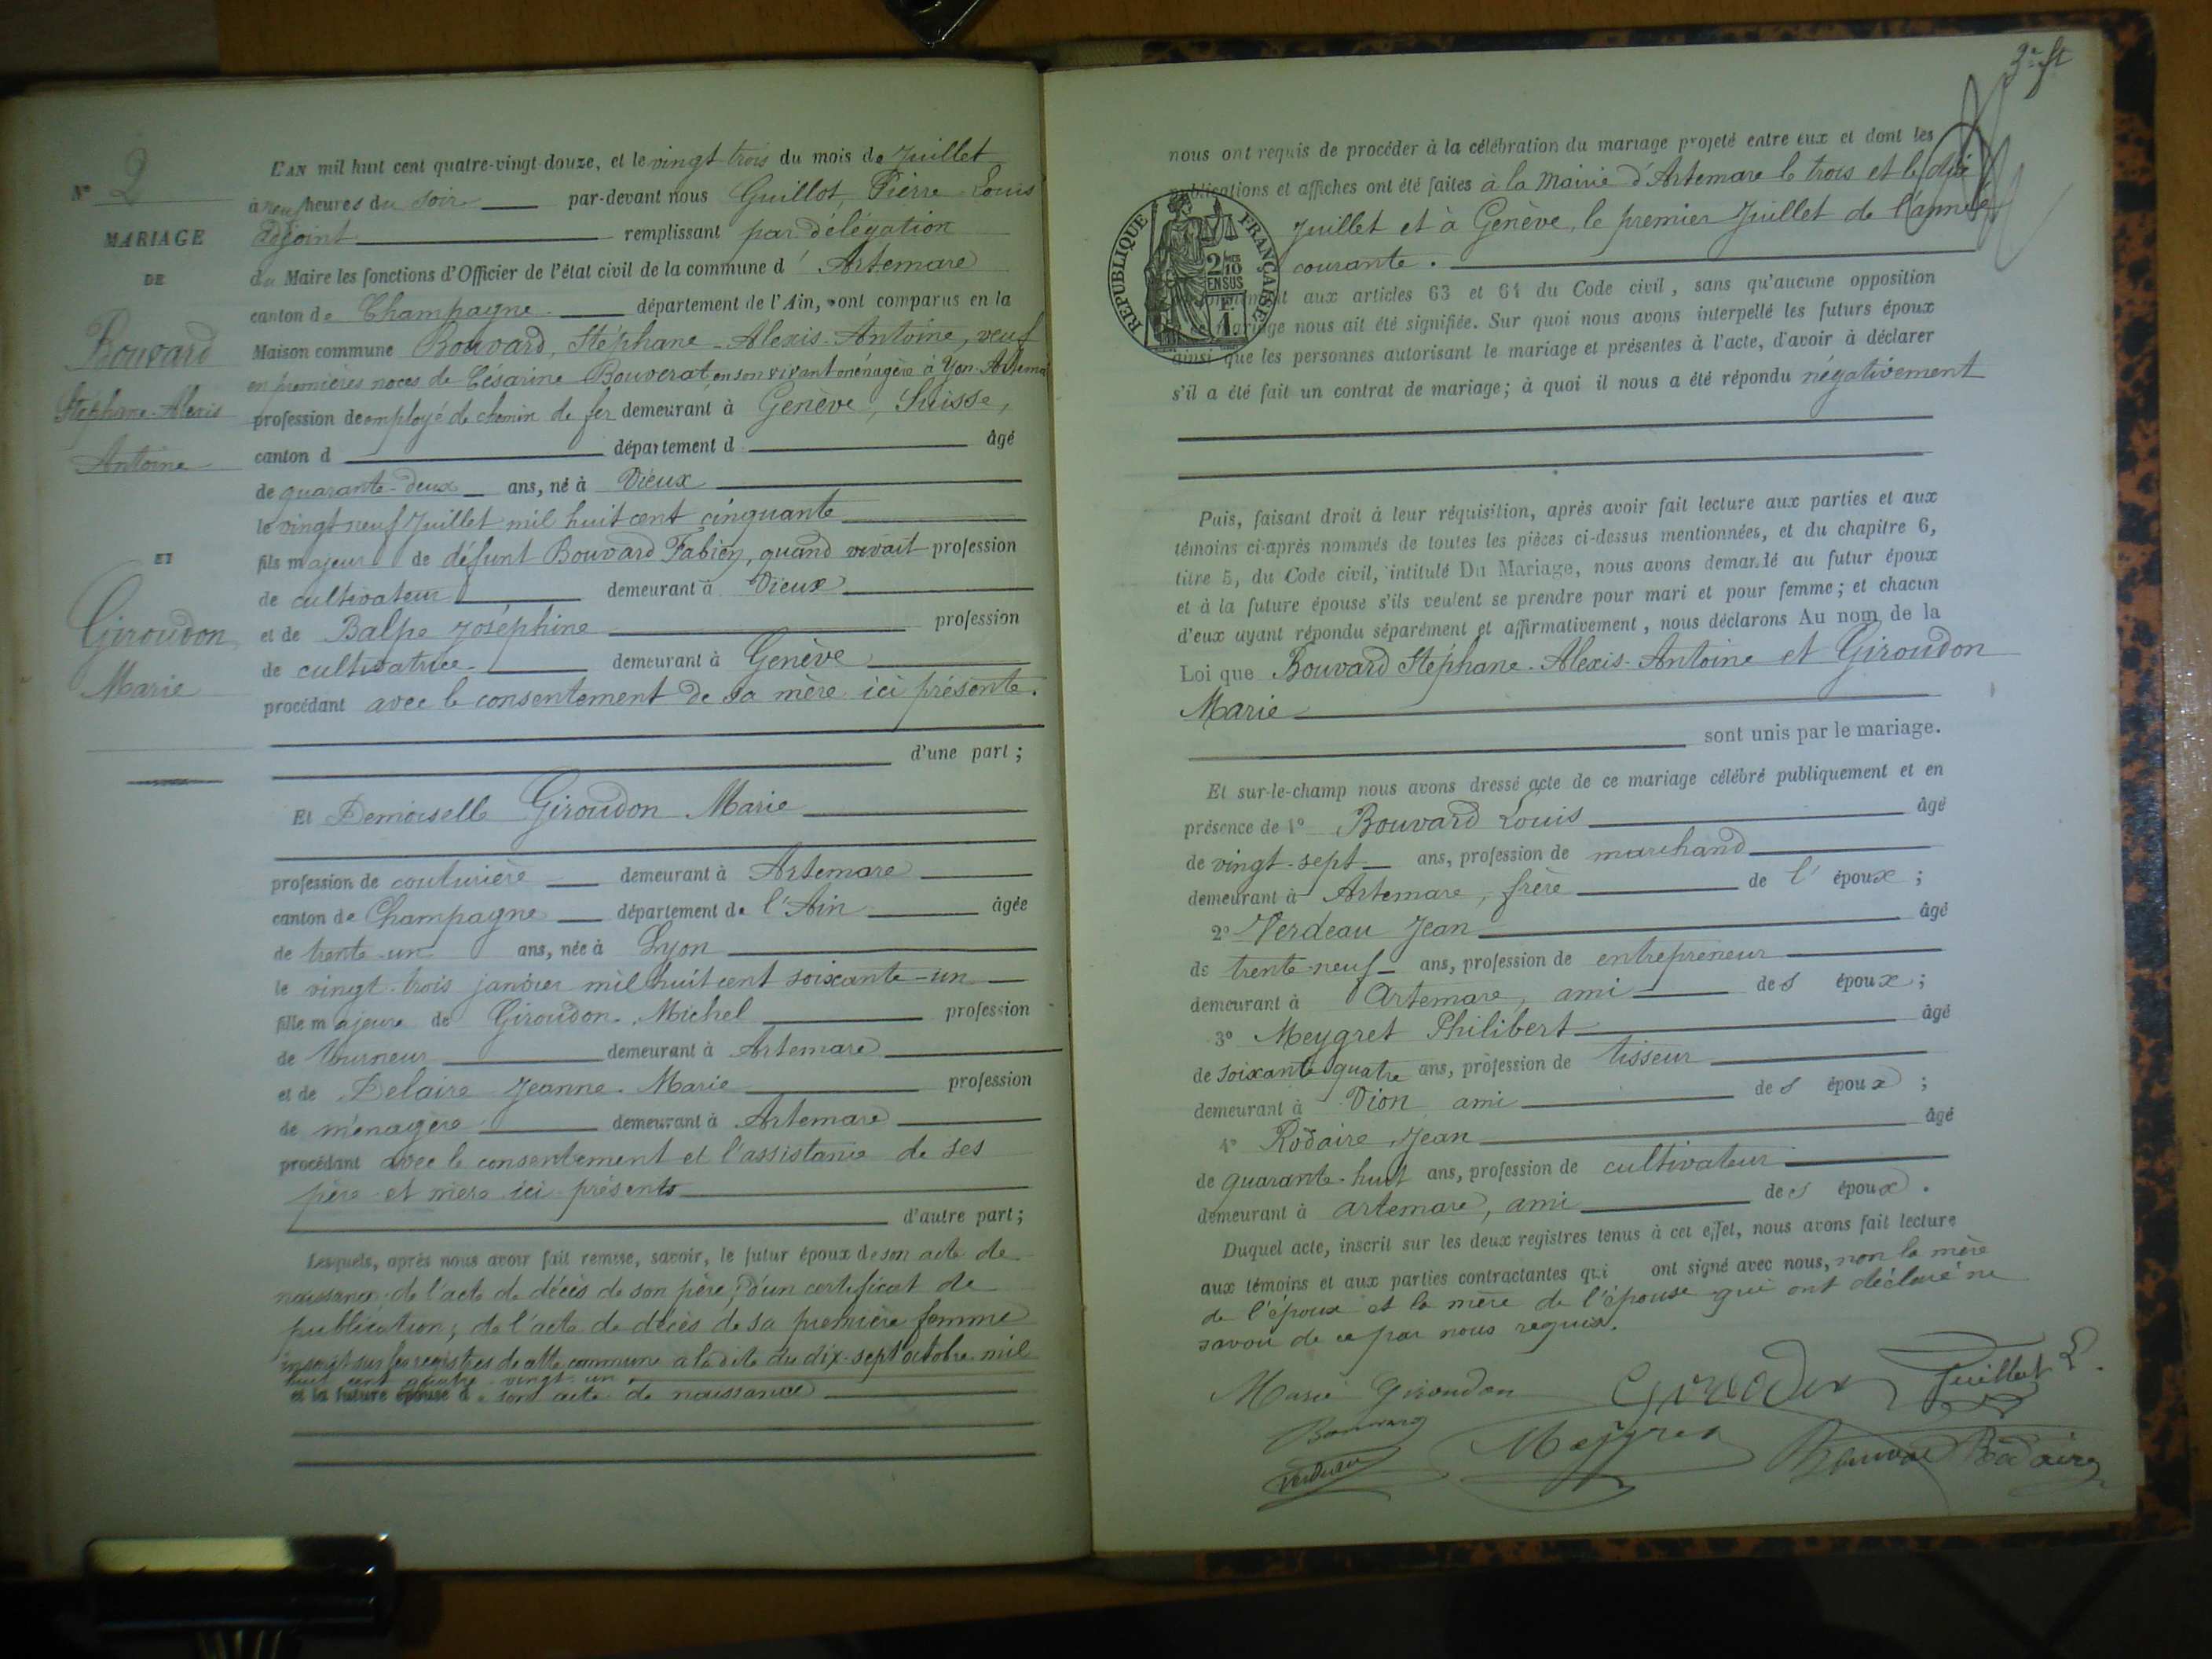 N° 2
MARIAGE
DE
Bouvard
Stéphane-Alexis
Antoine
ET
Giroudon
Marie
L'AN mil huit cent quatre-vingt-douze, et le vingt trois du mois de Juillet
à neuf heures du soir par-devant nous Guillot, Pierre-Louis
adjoint remplissant par délégation
du Maire les fonctions d'Officier de l'état civil de la commune d' Artemare
canton de Champagne département de l'Ain, sont comparus en la
Maison commune Bouvard, Stéphane-Alexis-Antoine, veuf
en premières noces de Césarine Bouverat en son vivant ménagère à Yon-Artema
profession de employé de chemin de fer demeurant à Genève, Suisse,
canton d département d âgé
de quarante-deux ans, né à Vieux
le vingt neuf Juillet mil huit cent cinquante
fils majeur de défunt Bouvard Fabien, quand vivait profession
de cultivateur demeurant à Vieux
et de Balpe Joséphine profession
de cultivatrice demeurant à Genève
procédant avec le consentement de sa mère ici présente.
d'une part ;
Et Demoiselle Giroudon Marie
profession de couturière demeurant à Artemare
canton de Champagne département de l'Ain âgée
de trente-un ans, née à Lyon
le vingt-trois janvier mil huit cent soixante-un
fille majeure de Giroudon Michel profession
de tourneur demeurant à Artemare
et de Delaire Jeanne-Marie profession
de ménagère demeurant à Artemare
procédant avec le consentement et l'assistance de ses
père et mère ici présents
d'autre part ;
Lesquels, après nous avoir fait remise, savoir, le futur époux de son acte de
naissance, de l'acte de décès de son père, d'un certificat de
publication, de l'acte de décès de sa première femme
inscrit sur les registres de cette commune à la date du dix-sept octobre mil
huit cent quatre-vingt-un
et la future épouse de son acte de naissance
3e ft
nous ont requis de procéder à la célébration du mariage projeté entre eux et dont les
publications et affiches ont été faites à la Mairie d'Artemare le trois et le dix
Juillet et à Genève, le premier Juillet de l'année
courante.
RÉPUBLIQUE FRANÇAISE
2/10
EN SUS
1
aux articles 63 et 64 du Code civil, sans qu'aucune opposition
mariage nous ait été signifiée. Sur quoi nous avons interpellé les futurs époux
ainsi que les personnes autorisant le mariage et présentes à l'acte, d'avoir à déclarer
s'il a été fait un contrat de mariage ; à quoi il nous a été répondu négativement
Puis, faisant droit à leur réquisition, après avoir fait lecture aux parties et aux
témoins ci-après nommés de toutes les pièces ci-dessus mentionnées, et du chapitre 6,
titre 5, du Code civil, intitulé Du Mariage, nous avons demandé au futur époux
et à la future épouse s'ils veulent se prendre pour mari et pour femme ; et chacun
d'eux ayant répondu séparément et affirmativement, nous déclarons Au nom de la
Loi que Bouvard Stéphane-Alexis-Antoine et Giroudon
Marie
sont unis par le mariage.
Et sur-le-champ nous avons dressé acte de ce mariage célébré publiquement et en
présence de 1° Bouvard Louis âgé
de vingt-sept ans, profession de marchand
demeurant à Artemare, frère de l' époux ;
2° Verdeau Jean âgé
de trente-neuf ans, profession de entrepreneur
demeurant à Artemare, ami des époux ;
3° Meygret Philibert âgé
de soixante quatre ans, profession de tisseur
demeurant à Vion ami des époux ;
4° Rodaire Jean âgé
de quarante-huit ans, profession de cultivateur
demeurant à artemare, ami des époux.
Duquel acte, inscrit sur les deux registres tenus à cet effet, nous avons fait lecture
aux témoins et aux parties contractantes qui ont signé avec nous, non la mère
de l'époux et la mère de l'épouse qui ont déclaré ne
savoir de ce par nous requis.
Marie Giroudon Giroudon Guillot L.
Bouvard Meygret Bouvard Rodaire
Verdeau